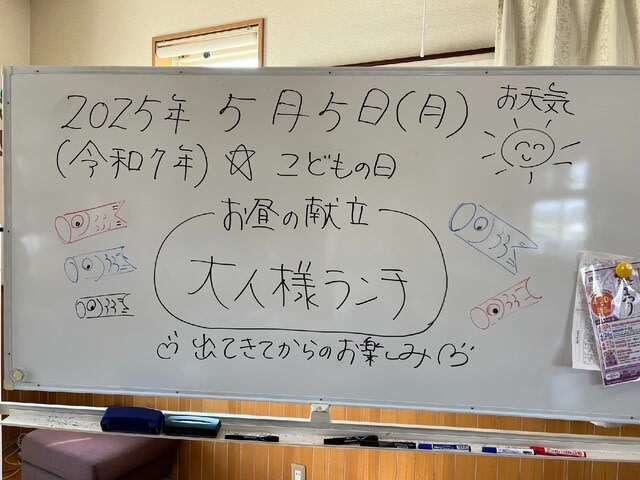 2025年 5月5日(月)
お天気
(令和7年) ☆ こどもの日
お昼の献立
大人様ランチ
出てきてからのお楽しみ